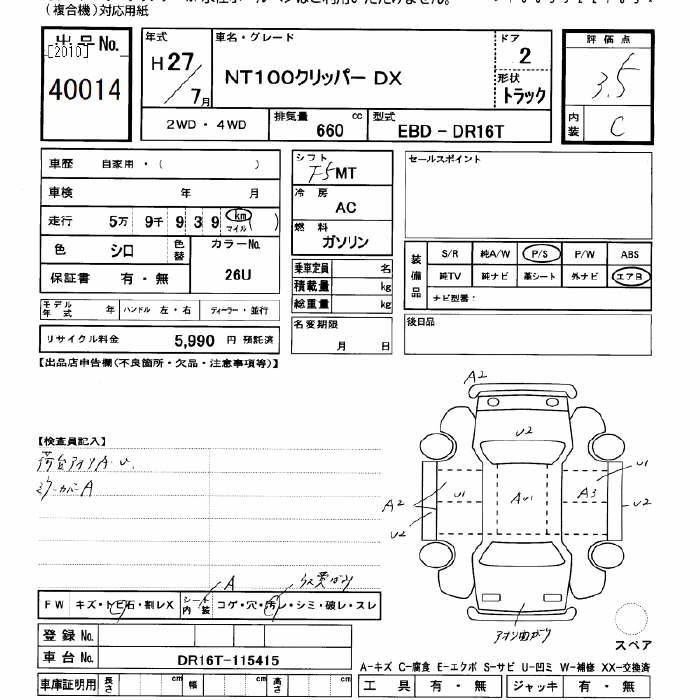 (複合機)対応用紙
出品No.
[2010]
40014
年式
H27/7月
車名・グレード
NT100クリッパー DX
ドア
2
形状
トラック
評価点
3.5
内装
C
2WD・4WD
排気量 660 cc
型式 EBD-DR16T
車歴 自家用・( )
車検 年 月
走行 5万 9千 9 3 9 km マイル ( )
色 シロ 色替
カラーNo.
26U
保証書 有・無
モデル年式 年 ハンドル 左・右 ディーラー・並行
リサイクル料金 5,990 円 預託済
シフト
F5 MT
冷房
AC
燃料
ガソリン
乗車定員 名
積載量 kg
総重量 kg
名変期限
月 日
セールスポイント
装備品
S/R 純A/W P/S P/W ABS
純TV 純ナビ 革シート 外ナビ エアB
ナビ型番:
後日品
【出品店申告欄(不良箇所・欠品・注意事項等)】
【検査員記入】
荷台アオリA・U.
ミラーカバーA
A2
U2
U1 AU1 A3 U1
A2 U2
U2
アオリ曲がり
スペア
FW キズ・トビ石・割レX
シート内装 コゲ・穴・汚レ・シミ・破レ・スレ
A
登録No.
車台No. DR16T-115415
車庫証明用 長さ cm 幅 cm 高さ cm
A-キズ C-腐食 E-エクボ S-サビ U-凹ミ W-補修 XX-交換済
工具 有・無 ジャッキ 有・無